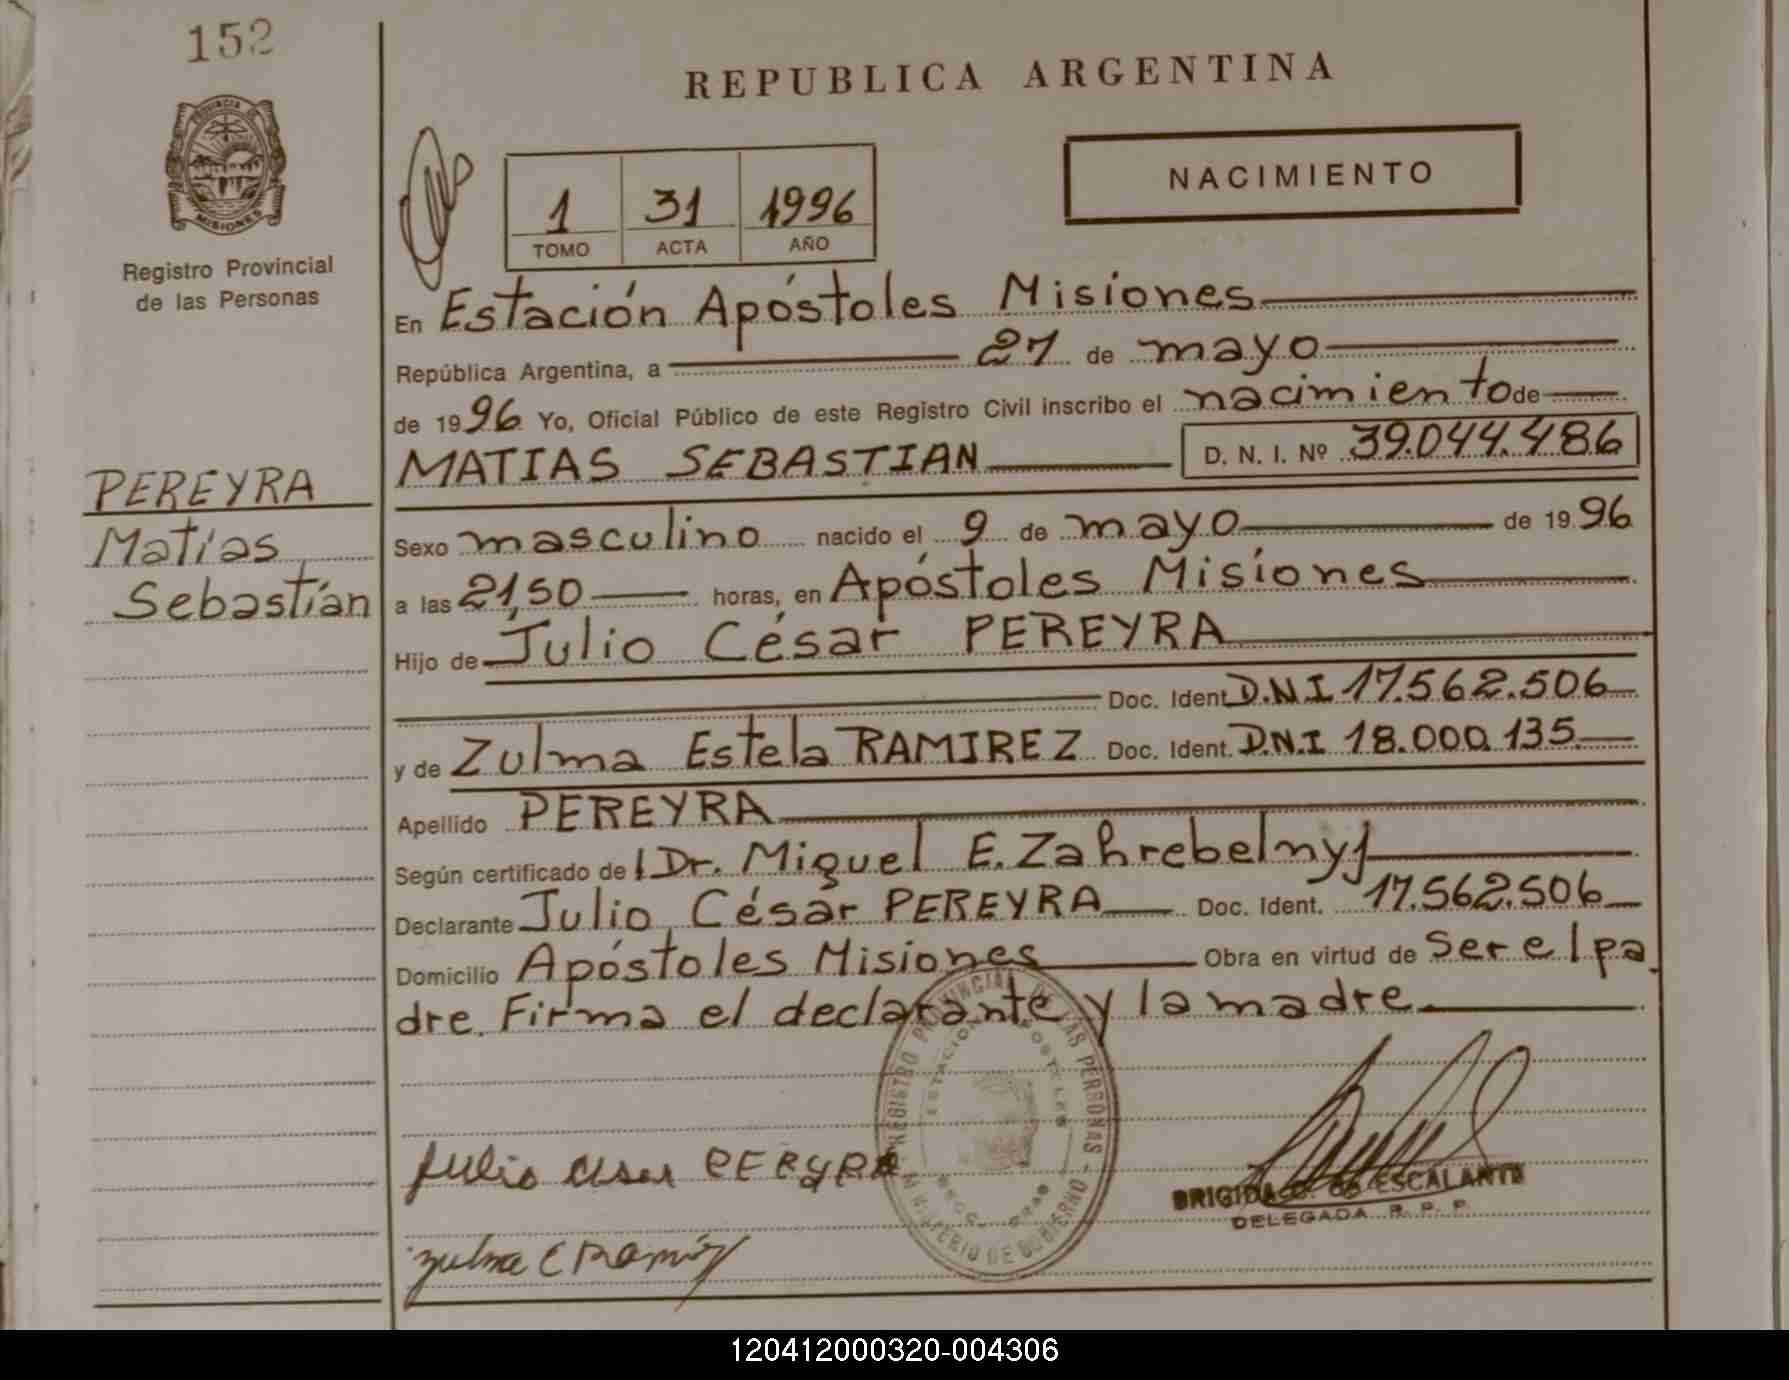 152
REPUBLICA ARGENTINA
PROVINCIA DE
MISIONES
Registro Provincial
de las Personas
1 31 1996
TOMO ACTA AÑO
NACIMIENTO
En Estación Apóstoles Misiones
República Argentina, a 27 de mayo
de 1996 Yo, Oficial Público de este Registro Civil inscribo el nacimiento de
MATIAS SEBASTIAN D. N. I. Nº 39.044.486
PEREYRA
Matías
Sebastián
Sexo masculino nacido el 9 de mayo de 1996
a las 21,50 horas, en Apóstoles Misiones
Hijo de Julio César PEREYRA
Doc. Ident. D.N.I 17.562.506
y de Zulma Estela RAMIREZ Doc. Ident. D.N.I 18.000.135
Apellido PEREYRA
Según certificado del Dr. Miguel E. Zahrebelnyj
Declarante Julio César PEREYRA Doc. Ident. 17.562.506
Domicilio Apóstoles Misiones Obra en virtud de ser el pa
dre. Firma el declarante y la madre
REGISTRO PROVINCIAL DE LAS PERSONAS - MINISTERIO DE GOBIERNO
ESTACION APOSTOLES
Julio Cesar PEREYRA
Zulma E Ramirez
BRIGIDA de ESCALANTE
DELEGADA R. P. P.
120412000320-004306